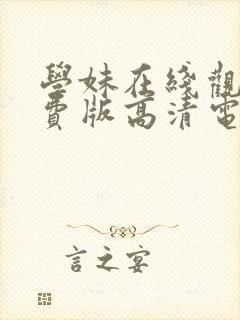 學妹在綫觀
費版高清電
言之宴